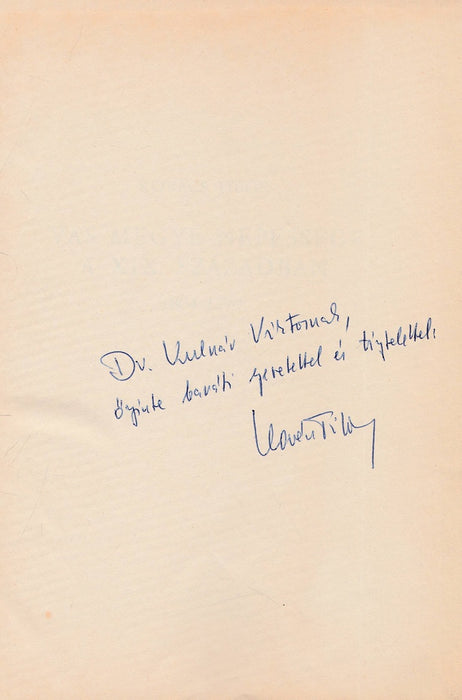 Dr. Kulnár Viktornak,
őszinte baráti szeretettel és tisztelettel: